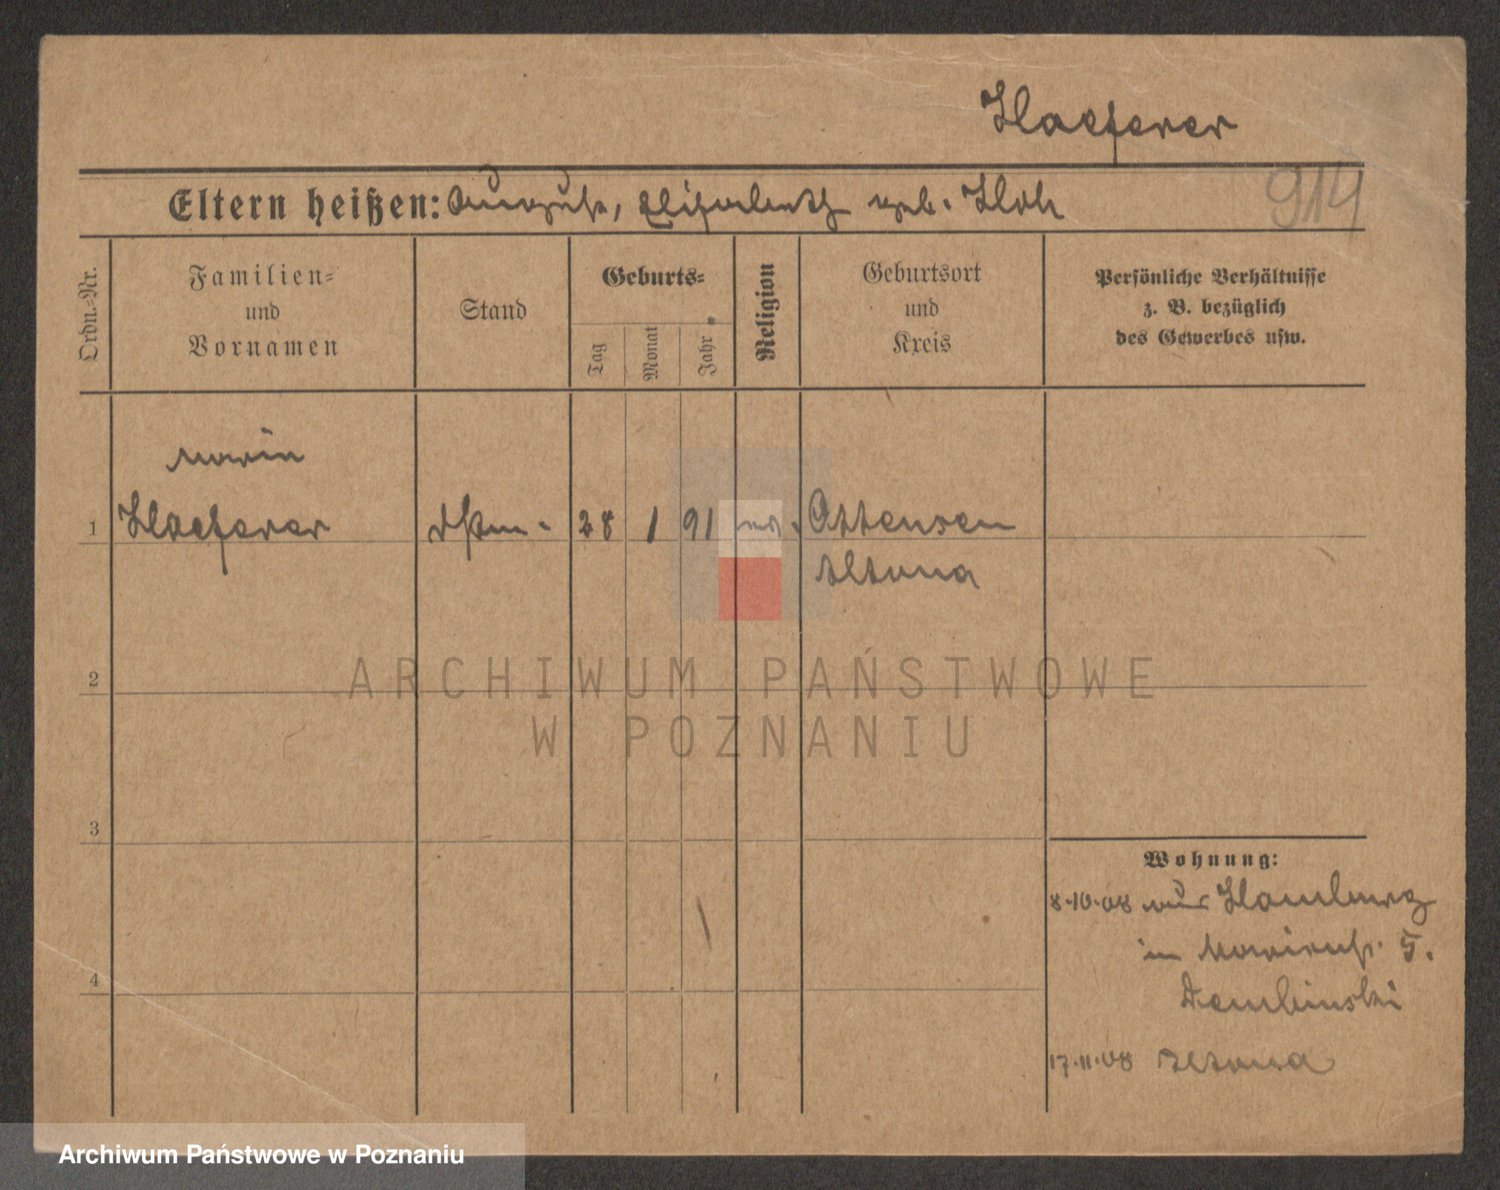 Haeferer
Eltern heißen: August, Elisabeth geb. Hoh
914
Ordn.-Nr.
Familien-
und
Vornamen
Stand
Geburts-
Tag
Monat
Jahr
Religion
Geburtsort
und
Kreis
Persönliche Verhältnisse
z. B. bezüglich
des Gewerbes usw.
Maria
1 Haeferer 28 1 91 Ottensen
Altona
2
3
4
Wohnung:
8.10.08 aus Hamburg
in 5.
Dembinski
17.11.08 Altona
ARCHIWUM PAŃSTWOWE
W POZNANIU
Archiwum Państwowe w Poznaniu